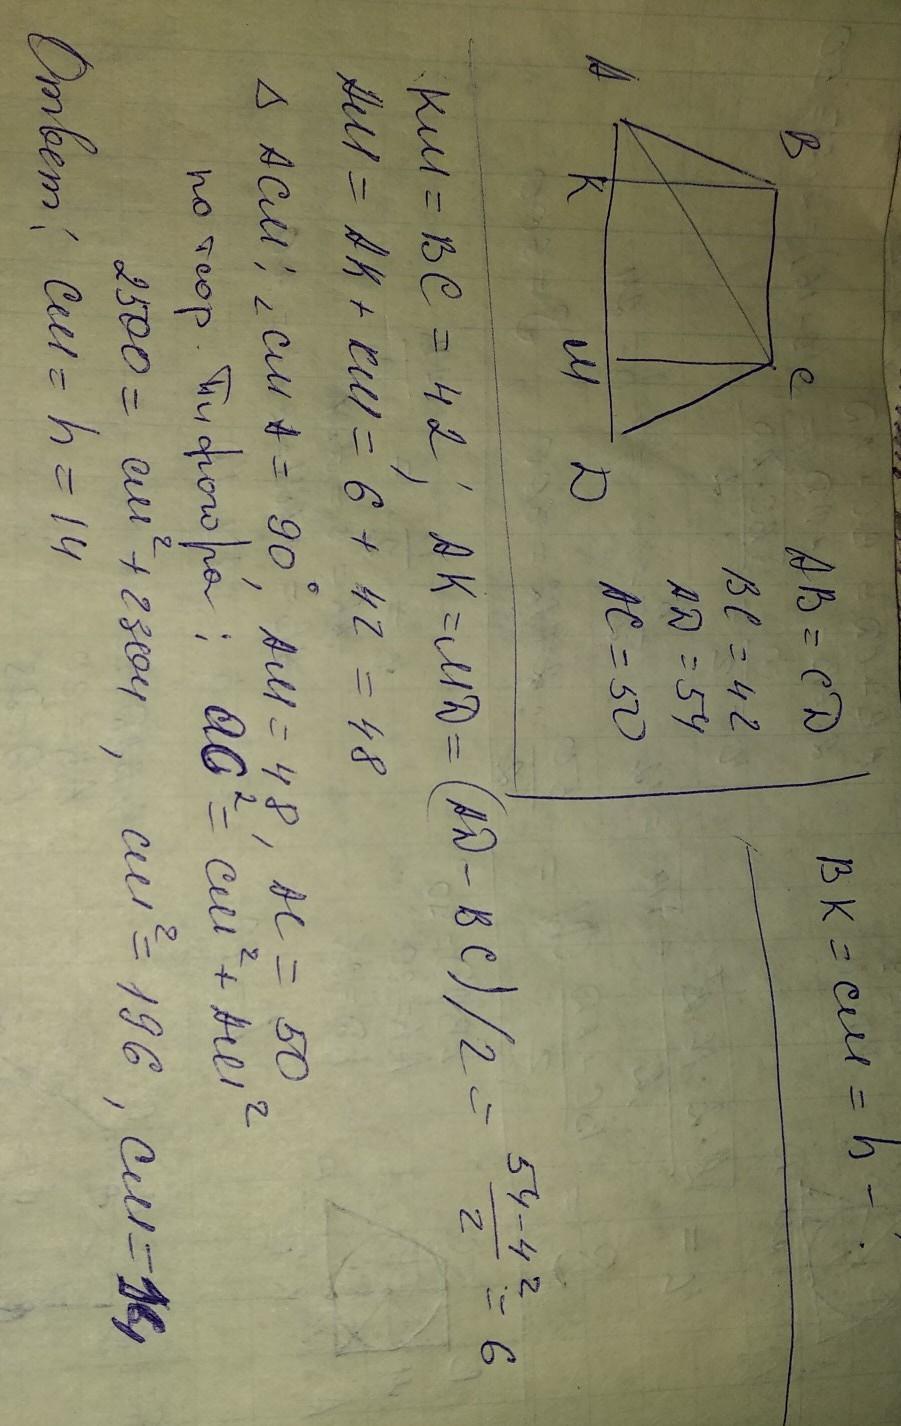 B
C
A
K
M
D
AB = CD
BC = 42
AD = 54
AC = 50
BK = CM = h - .
KM = BC = 42; AK = MD = (AD - BC)/2 = 54-42/2 = 6
AM = AK + KM = 6 + 42 = 48
Δ ACM; ∠CMA = 90°, AM = 48, AC = 50
по теор. Пифагора: AC² = CM² + AM²
2500 = CM² + 2304, CM² = 196, CM = 14
Ответ: CM = h = 14